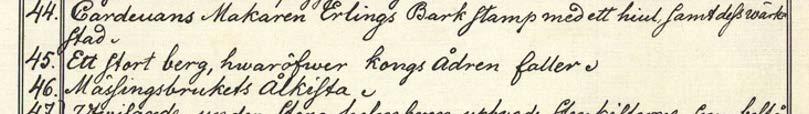 44. Carduans Makaren Erlings Bark stamp med ett hiul, samt dess wärk-
stad.
45. Ett stort berg, hwaröfwer kongs Ådren faller.
46. Mässingsbrukets Ålkista.
47.